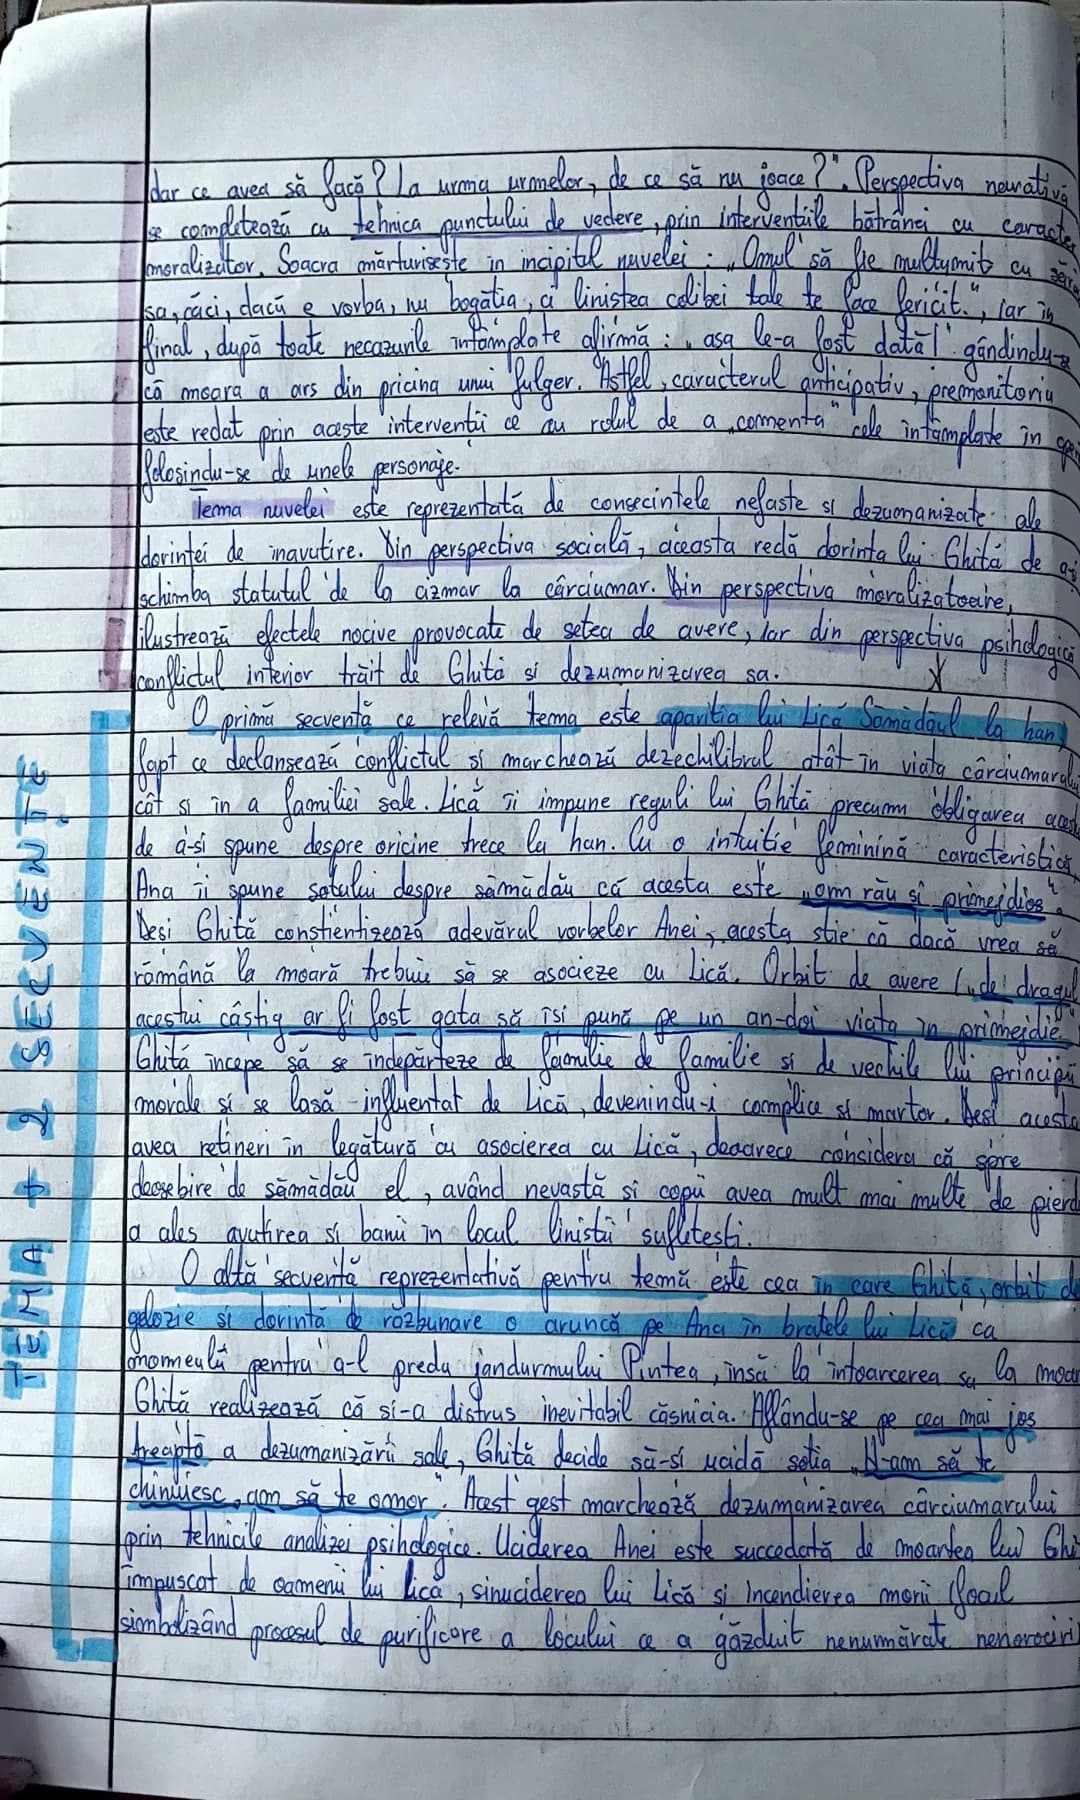 dar ce avea să facă? La urma urmelor, de ce să nu joace?". Perspectiva narativă
se completează cu tehnica punctului de vedere, prin intervențiile bătrânei cu caracter
moralizator. Soacra mărturisește în incipitul nuvelei: „Omul să fie mulțumit cu
sa, căci, dacă e vorba, nu bogăția, ci liniștea colibei tale te face fericit.", iar în
final, după toate necazurile întâmplate afirmă: „așa le-a fost dată!" gândindu-se
că moara a ars din pricina unui fulger. Astfel, caracterul anticipativ, premonitoriu
este redat prin aceste intervenții ce au rolul de a „comenta" cele întâmplate în
folosindu-se de unele personaje.
Tema nuvelei este reprezentată de consecintele nefaste și dezumanizate ale
dorinței de înavuțire. Din perspectiva socială, aceasta redă dorința lui Ghiță de a-și
schimba statutul de la cizmar la cârciumar. Din perspectiva moralizatoare,
ilustrează efectele nocive provocate de setea de avere, iar din perspectiva psihologică
conflictul interior trăit de Ghiță și dezumanizarea sa.
O primă secvență ce relevă tema este apariția lui Lică Sămădăul la han,
fapt ce declanșează conflictul și marchează dezechilibrul atât în viața cârciumarului
cât și în a familiei sale. Lică îi impune reguli lui Ghiță precum obligarea
de a-și spune despre oricine trece la han. Cu o intuiție feminină caracteristică,
Ana îi spune soțului despre sămădău că acesta este „om rău și primejdios".
Deși Ghiță conștientizează adevărul vorbelor Anei, acesta știe că dacă vrea să
rămână la moară trebuie să se asocieze cu Lică. Orbit de avere („de dragul
acestui câștig ar fi fost gata să își pună pe un an-doi viața în primejdie
Ghiță începe să se îndepărteze de familie de familie și de vechile lui principii
morale și se lasă influențat de Lică, devenindu-i complice și martor. Deși acesta
avea rețineri în legătură cu asocierea cu Lică, deoarece considera că spre
deosebire de sămădău el, având nevastă și copii avea mult mai multe de
a ales avuțirea și banii în locul liniștii sufletești.
O altă secvență reprezentativă pentru temă este cea în care Ghiță, orbit de
gelozie și dorință de răzbunare o aruncă pe Ana în brațele lui Lică ca
momeală pentru a-l preda jandurmului Pintea, însă la întoarcerea sa la
Ghiță realizează că și-a distrus inevitabil căsnicia. Aflându-se pe cea mai jos
treaptă a dezumanizării sale, Ghiță decide să-și ucidă soția „N-am să te
chinuiesc, am să te omor". Acest gest marchează dezumanizarea cârciumarului
prin tehnicile analizei psihologice. Uciderea Anei este succedată de moartea lui
împușcat de oamenii lui Lică, sinuciderea lui Lică și incendierea morii (focul
simbolizând procesul de purificare a locului ce a găzduit nenumărate
TEMA + 2 SECVENȚE